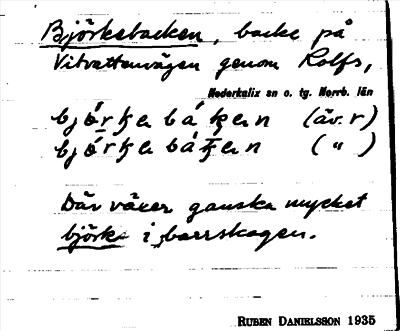 Björkebacken, backe på
Vitvattenvägen genom Rolfs,
Nederkalix sn o. tg. Norrb. län
(äv. r)
( " )
Där växer ganska mycket
björk i barrskogen.
RUBEN DANIELSSON 1935